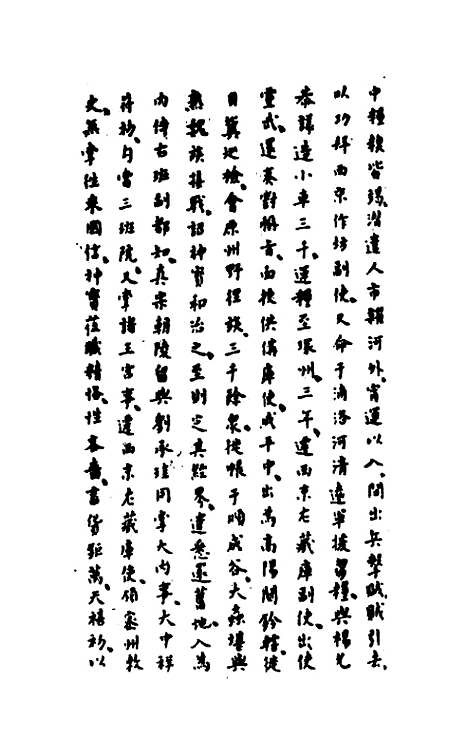 中糧糗皆竭潛遣人市糴河外宵運以入間出兵擊賊賊引去
以功拜西京作坊副使又命于浦洛河清遠軍援芻糧與楊允
恭議造小車三千運糧至環州三年遷西京左藏庫副使出使
靈武還奏對稱旨面授供備庫使咸平中出為高陽關鈐轄徙
貝冀巡檢會原州野俚族三千餘衆徙帳于順成谷大蟲堪與
熟魏族接戰詔神寶和治之至則定其經界遣悉還舊地入為
內侍右班副都知真宗朝陵留與劉承珪同掌大內事大中祥
符初勾當三班院又掌諸王宮事遷西京左藏庫使領密州牧
史無掌往來國信神寶莅職精恪性吝嗇畜貨鉅萬天禧初以